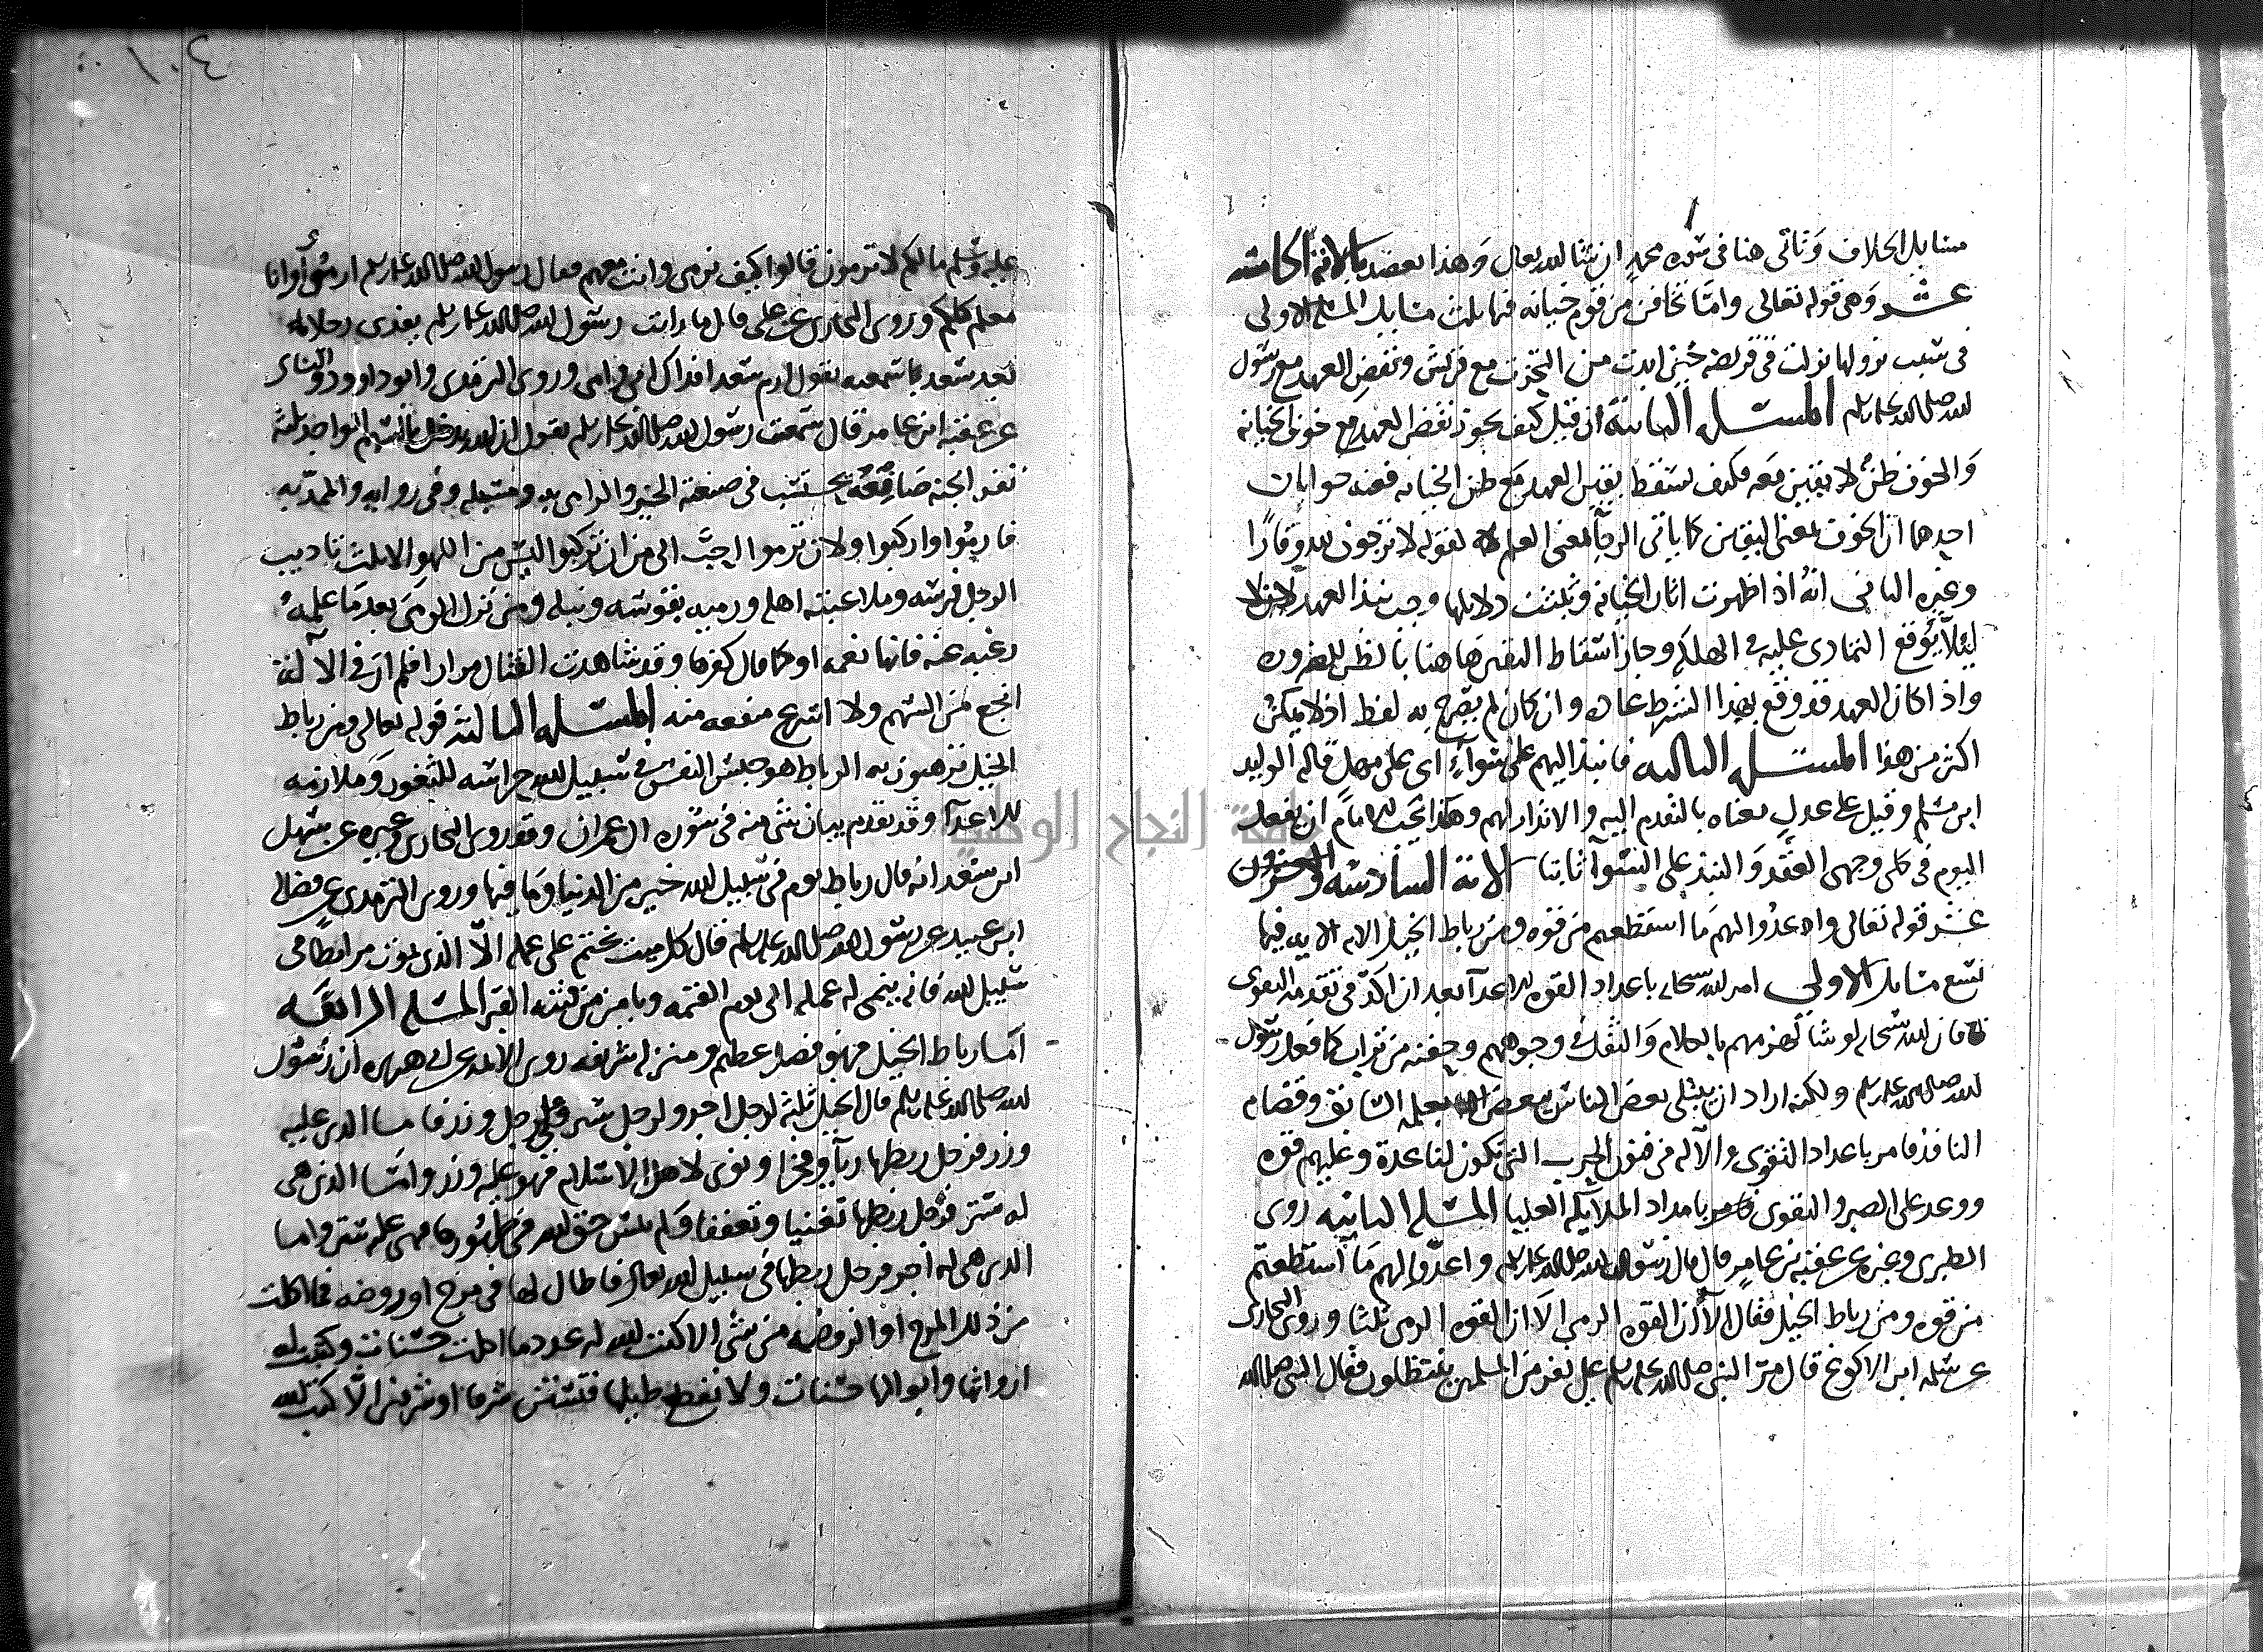 مسايل الخلاف وتاتي هنا في سوره محمد ان شا الله تعالى وهذا بعضد بالاية الخامسة
عشر وهي قوله تعالى واما تخافن من قوم خيانه فيها ثلث مسايل المسئلة الاولى
في سبب نزولها نزلت في قريضه حين ابدت من التحزب مع قريش ونقض العهد مع رسول
الله صلى الله عليه وسلم المسئله الثانية ان قيل كيف يجوز نقض العهد مع خوف الخيانة
والخوف ظن لا يقين معه فكيف يسقط يقين العهد مع ظن الخيانه فعنه جوابان
احدهما ان الخوف بمعنى اليقين كما ياتي الرجا بمعنى العلم لقوله لا ترجون لله وقارا
وغيره الثاني انه اذا ظهرت اثار الخيانه وثبتت دلايلها وجب نبذ العهد
ليلا يوقع التمادي عليه في الهلكه وجاز اسقاط اليقين هاهنا بالظن للضروره
واذا كان العهد قد وقع بهذا الشرط عادة وان كان لم يصرح به لفظا اذ لا يمكن
اكثر من هذا المسئله الثالثه فانبذ اليهم على سواء اي على مهل قاله الوليد
ابن مسلم وقيل على عدل معناه بالتقدم اليه والانذار لهم وهكذا يجب للامام ان يفعل
اليوم في كلي وجهي العقد والنبذ على السوا ثابتا الاية السادسه
عشر قوله تعالى واعدوا لهم ما استطعتم من قوه ومن رباط الخيل الايه الايه فيها
تسع مسايل الاولى امر الله سبحانه باعداد القوه للاعدا بعد ان اكد في تقدمة التقوى
فان الله سبحانه لو شا لهزمهم بالكلام والتفل في وجوههم وحفنه من تراب كما فعل رسول
الله صلى الله عليه وسلم ولكنه اراد ان يبتلى بعض الناس ببعض بعلمه السابق وقضاه
النافذ فامر باعداد القوى والآله في فنون الحرب التي تكون لنا عدة وعليهم قوه
ووعد على الصبر والتقوى بامداد الملائكه العليا المسئله الثانيه روى
الطبري وغيره عن عقبه بن عامر قال قال رسول الله صلى الله عليه وسلم واعدوا لهم ما استطعتم
من قوه ومن رباط الخيل فقال الا ان القوه الرمي الا ان القوه الرمي ثلثا وروى البخارى
عن سلمه ابن الاكوع قال مر النبي صلى الله عليه وسلم على نفر من المسلمين ينتظلون فقال النبي صلى الله
١٠٤
عليه وسلم مالكم لا ترمون قالوا كيف نرمى وانت معهم فقال رسول الله صلى الله عليه وسلم ارموا وانا
معكم كلكم وروى البخارى عن على قال ما رايت رسول الله صلى الله عليه وسلم يفدى رجلا
بعد سعد سمعته يقول ارم سعد افداك ابي وامى وروى الترمذي وابو داوود والنسائي
عن عقبه ابن عامر قال سمعت رسول الله صلى الله عليه وسلم يقول ان الله يدخل بالسهم الواحد ثلثه
نفر الجنه صانعه يحتسب في صنعته الخير والرامى به ومنبله وفي روايه والممد به
فارموا واركبوا ولان ترموا احب الى من ان تركبوا ليس من اللهو الا ثلث تاديب
الرجل فرسه وملاعبته اهله ورميه بقوسه ونبله ومن ترك الرمى بعد ما علمه
رغبه عنه فانها نعمه او كما قال كفرها وقد شاهدت القتال مرارا فلم ار في الآله
انجع من السهم ولا اسرع منفعه منه المسئله الثالثه قوله تعالى ومن رباط
الخيل ترهبون به الرباط هو حبس النفس في سبيل الله حراسه للثغور وملازمه
للاعدآ وقد تقدم بيان شي منه في سوره ال عمران وقد روى البخارى وغيره عن سهل
ابن سعد انه قال رباط يوم في سبيل الله خير من الدنيا وما فيها وروى الترمذى عن فضاله
ابن عبيد عن رسول الله صلى الله عليه وسلم قال كل ميت يختم على عمله الا الذى يموت مرابطا في
سبيل الله فانه ينمى له عمله الى يوم القيمه ويامن من فتنه القبر المسئله الرابعه
اما رباط الخيل فهو فضل عظيم ومنزله شريفه روى الايمه عن ابي هريره ان رسول
الله صلى الله عليه وسلم قال الخيل ثلثة لرجل اجر ولرجل ستر وعلى رجل وزر فاما الذي عليه
وزر فرجل ربطها ريآ وفخرا ونوى لاهل الاسلام فهو عليه وزر واما الذي هي
له ستر فرجل ربطها تغنيا وتعففا ولم ينس حق الله في ظهورها فهي عليه ستر واما
الذي هي له اجر فرجل ربطها في سبيل الله تعالى فاطال لها في مرج او روضه فما اكلت
من ذلك المرج او الروضه من شى الا كتب الله له عدد ما اكلت حسنات وكتب له
ارواثها وابوالها حسنات ولا تقطع طيلها فتستن شرفا او شرفين الا كتب الله